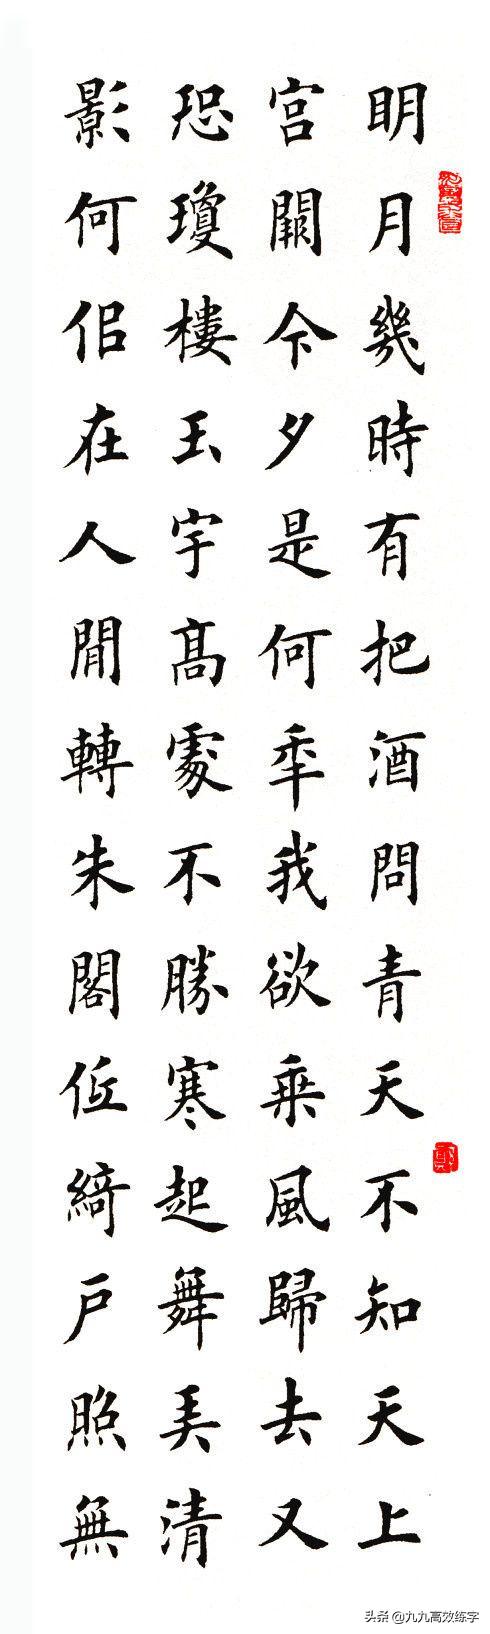 明月幾時有把酒問青天不知天上
宮闕今夕是何年我欲乘風歸去又
恐瓊樓玉宇髙處不勝寒起舞弄清
影何佀在人閒轉朱閣低綺戶照無
头条 @九九高效练字